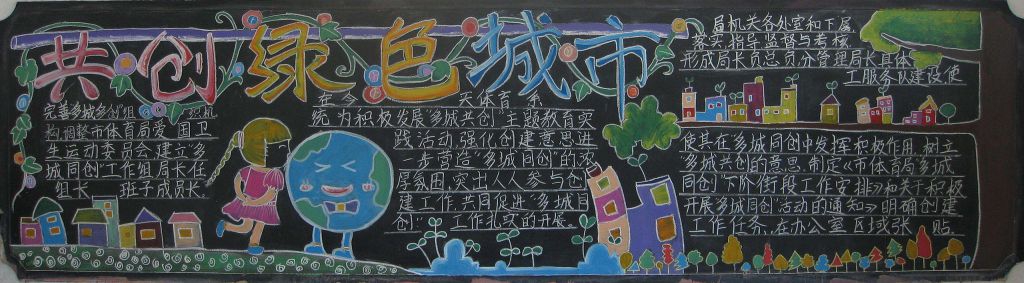 共创绿色城市
完善多城多创组织机
构,调整市体育局爱国卫
生运动委员会,建立“多
城同创”工作组局长任
组长 班子成员长。
在今 天体育系
统为积极发展“多城共创”主题教育实
践活动,强化创建意思进
一步营造“多城同创”的浓
厚氛围,突出人人参与创
建工作,共同促进“多城目
创” 工作扎实的开展。
局机关各处室和下层
落实,指导监督与考核,
形成局长员总员分管理局长具体
工服务队建设使
使其在多城同创中发挥积极作用,树立
“多城共创的意思,制定《市体育局多城
同创”下阶街段工作安排》和关于积极
开展多城目创“活动的通知》明确创建
工作任务,在办公室区域张 贴。